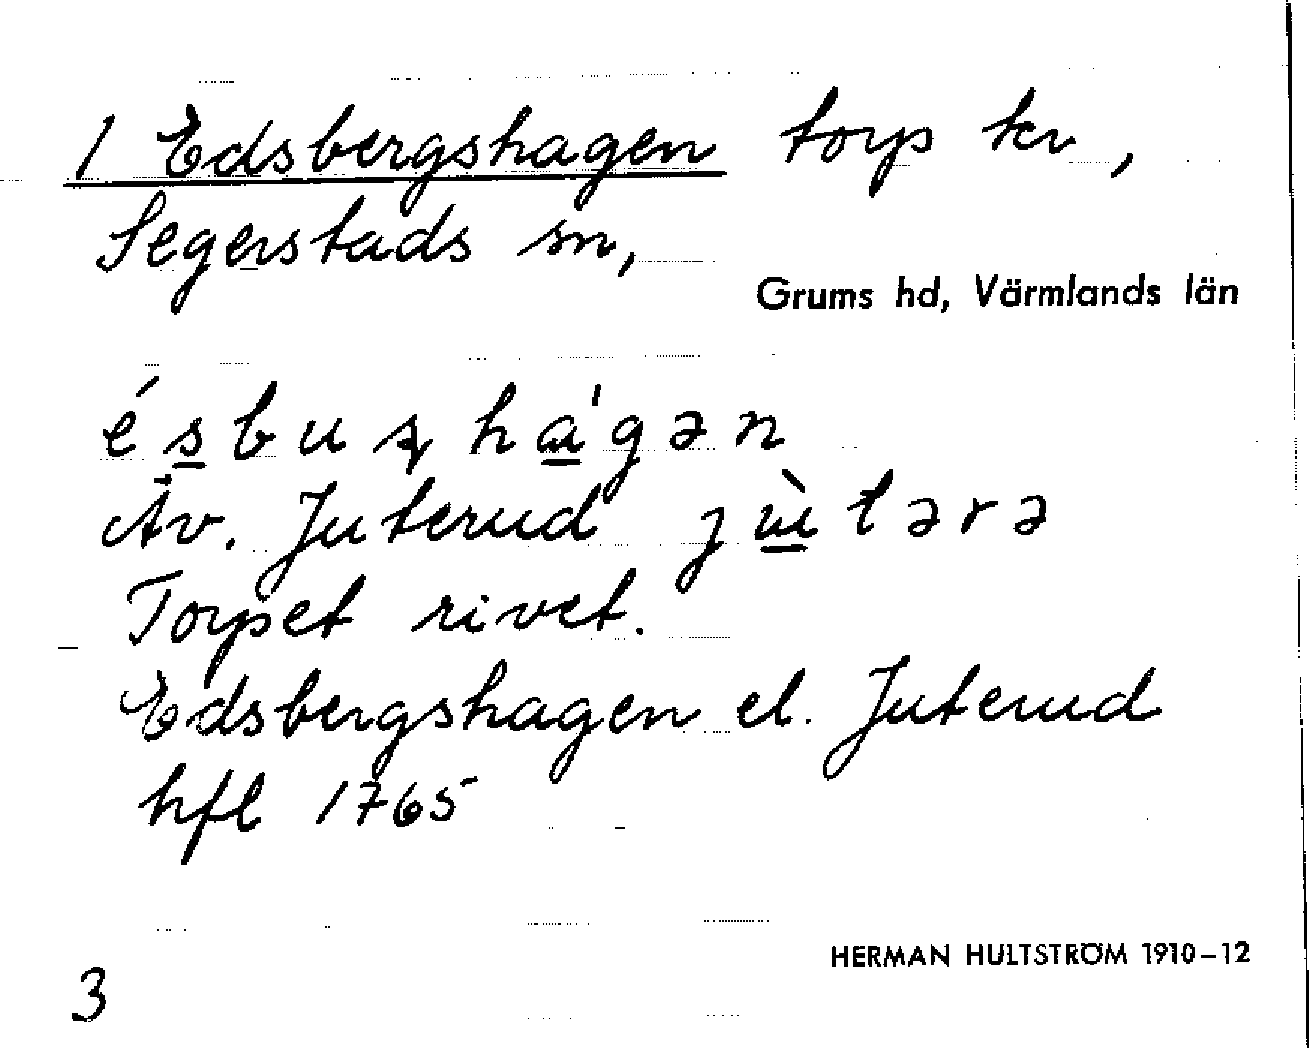 1 Edsbergshagen torp kr,
Segerstads sn,
Grums hd, Värmlands län
ésbuʂhɑ́gən
Äv. Juterud jùtərə
Torpet rivet.
Edsbergshagen el. Juterud
hfl 1765
HERMAN HULTSTRÖM 1910–12
3